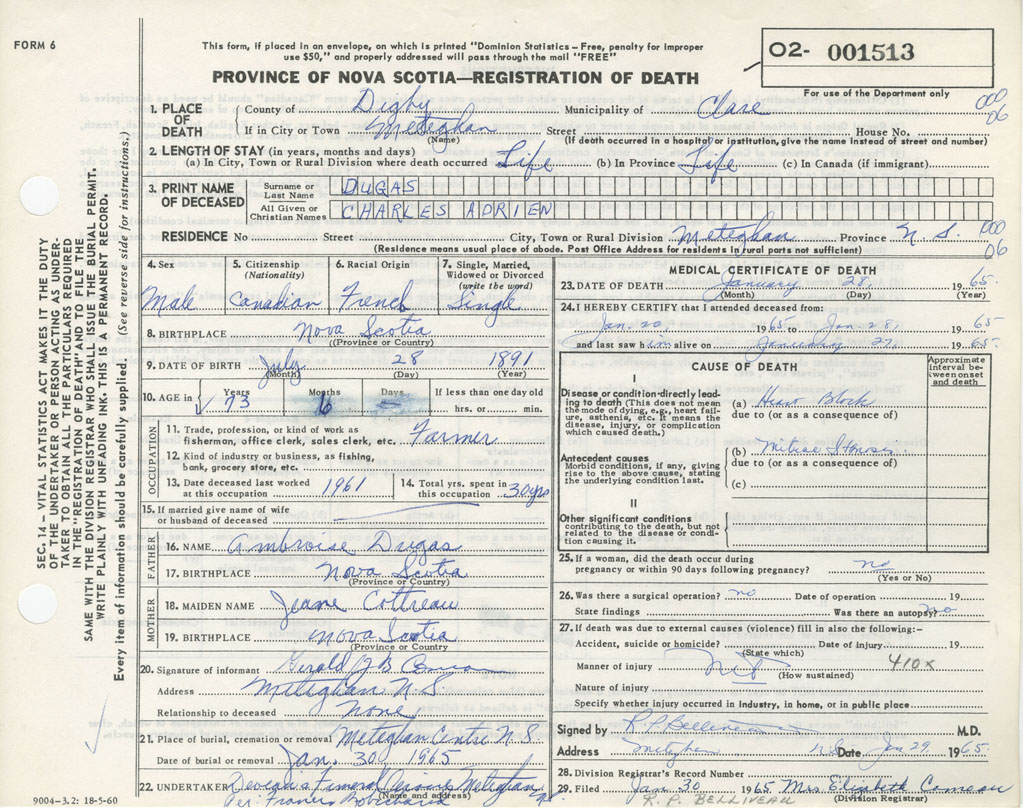 FORM 6
This form, if placed in an envelope, on which is printed "Dominion Statistics – Free, penalty for improper
use $50," and properly addressed will pass through the mail "FREE"
PROVINCE OF NOVA SCOTIA—REGISTRATION OF DEATH
O2- 001513
For use of the Department only
1. PLACE OF DEATH
County of Digby Municipality of Clare 000 06
If in City or Town Meteghan Street House No.
(Name) (If death occurred in a hospital or institution, give the name instead of street and number)
2. LENGTH OF STAY (in years, months and days)
(a) In City, Town or Rural Division where death occurred Life (b) In Province Life (c) In Canada (if immigrant)
3. PRINT NAME OF DECEASED
Surname or Last Name DUGAS
All Given or Christian Names CHARLES ADRIEN
RESIDENCE No Street City, Town or Rural Division Meteghan Province N.S. 000 06
(Residence means usual place of abode. Post Office Address for residents in rural parts not sufficient)
4. Sex Male
5. Citizenship (Nationality) Canadian
6. Racial Origin French
7. Single, Married, Widowed or Divorced (write the word) Single
8. BIRTHPLACE Nova Scotia
(Province or Country)
9. DATE OF BIRTH July 28 1891
(Month) (Day) (Year)
10. AGE in Years 73 Months 6 Days If less than one day old hrs. or min.
OCCUPATION
11. Trade, profession, or kind of work as
fisherman, office clerk, sales clerk, etc. Farmer
12. Kind of industry or business, as fishing,
bank, grocery store, etc.
13. Date deceased last worked at this occupation 1961
14. Total yrs. spent in this occupation 30 yrs
15. If married give name of wife
or husband of deceased
FATHER
16. NAME Ambroise Dugas
17. BIRTHPLACE Nova Scotia
(Province or Country)
MOTHER
18. MAIDEN NAME Jeane Cottreau
19. BIRTHPLACE Nova Scotia
(Province or Country
20. Signature of informant Gerald
Address Meteghan N.S.
Relationship to deceased None
21. Place of burial, cremation or removal Meteghan Centre N.S.
Date of burial or removal Jan. 30 1965
22. UNDERTAKER Funeral Meteghan
(Name and address)
9004–3.2: 18-5-60
MEDICAL CERTIFICATE OF DEATH
23. DATE OF DEATH January 28, 19 65
(Month) (Day) (Year)
24. I HEREBY CERTIFY that I attended deceased from:
Jan. 20, 1965 to Jan 28, 19 65
and last saw him alive on January 27, 19 65
CAUSE OF DEATH
Approximate Interval between onset and death
I
Disease or condition directly leading to death (This does not mean the mode of dying, e.g., heart failure, asthenia, etc. It means the disease, injury, or complication which caused death.)
(a) Heart Block
due to (or as a consequence of)
Antecedent causes
Morbid conditions, if any, giving rise to the above cause, stating the underlying condition last.
(b) Mitral
due to (or as a consequence of)
(c)
II
Other significant conditions
contributing to the death, but not related to the disease or condition causing it.
25. If a woman, did the death occur during
pregnancy or within 90 days following pregnancy? no
(Yes or No)
26. Was there a surgical operation? no Date of operation 19
State findings Was there an autopsy? no
27. If death was due to external causes (violence) fill in also the following:–
Accident, suicide or homicide? Date of injury 19
(State which)
Manner of injury 410x
(How sustained)
Nature of injury
Specify whether injury occurred in industry, in home, or in public place
Signed by R. P. Belliveau M.D.
Address Meteghan N.S. Date Jan 29 1965
28. Division Registrar's Record Number
29. Filed Jan 30 1965 Mrs Elizabeth Comeau
(Division Registrar)
R. P. BELLIVEAU
SEC. 14 – VITAL STATISTICS ACT MAKES IT THE DUTY
OF THE UNDERTAKER OR PERSON ACTING AS UNDER-
TAKER TO OBTAIN ALL THE PARTICULARS REQUIRED
IN THE "REGISTRATION OF DEATH" AND TO FILE THE
SAME WITH THE DIVISION REGISTRAR WHO SHALL ISSUE THE BURIAL PERMIT.
WRITE PLAINLY WITH UNFADING INK. THIS IS A PERMANENT RECORD.
Every item of information should be carefully supplied. (See reverse side for instructions.)